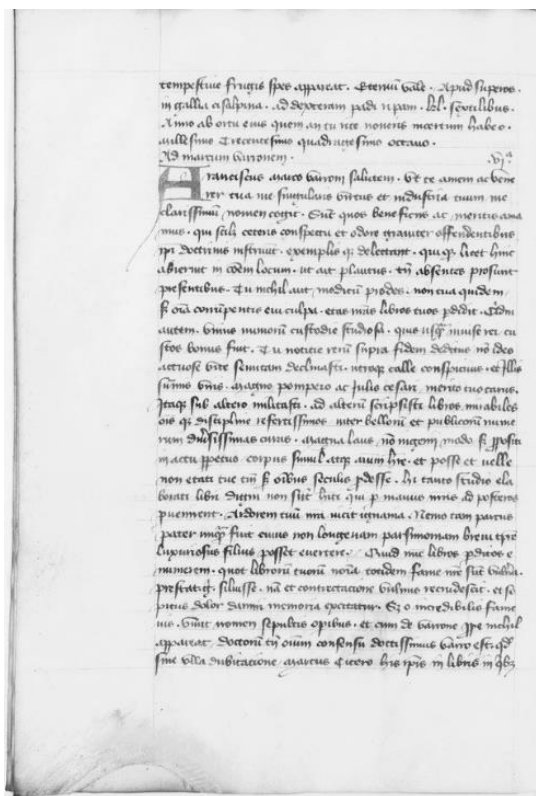 tempestive frugis spes appareat. Eternum vale. Apud superos.
in gallia cisalpina. ad dexteram padi ripam. kl. sextilibus.
Anno ab ortu eius quem an tu rite noveris incertum habeo.
millesimo Trecentesimo quadragesimo octavo.
Ad marcum varronem. .vi.a
Franciscus marco varroni salutem. Ut te amem ac vene
rer tua me singularis virtus et industria tuum me
clarissimum nomen cogit. Sunt quos beneficiis ac meritis ama
mus. qui scilicet ceteris conspectu et odore graviter offendentibus
ipsi doctrinis instruunt. exemplis que delectant. quique licet hinc
abierunt in communem locum. ut ait plautus. tamen absentes prosunt
presentibus. Tu nichil aut modicum prodes. non tua quidem
sed omnia corrumpentis evi culpa. etas nostra libros tuos perdidit. Quidni
autem. unius nummorum custodie studiosa. quis usquam invise rei cu
stos bonus fuit. Tu notitie rerum supra fidem deditus non ideo
actuose vite semitam declinasti. utroque calle conspicuus. et illis
summis viris. magno pompeio ac Julio cesari merito tuo carus.
Itaque sub altero militasti. ad alterum scripsisti libros mirabiles
omnisque discipline refertissimos inter bellorum et publicorum mune
rum diversissimas curas. Magna laus. non ingenii modo sed propositi
in actu perpetuo corpus simul atque animum habere. et posse et velle
non etati tue tantum sed omnibus seculis prodesse. hi tanto studio ela
borati libri digni non sunt habiti qui per manus nostras ad posteros
pervenirent. Ardorem tuum nostra vicit ignavia. Nemo tam parcus
pater unquam fuit cuius non longevam parsimoniam brevi tempore
luxuriosus filius posset evertere. Quid nunc libros perditos e
numerem. quot librorum tuorum nomina totidem fame nostre sunt vulnera.
prestat igitur siluisse. nam et contrectatione vulnus recrudescit. et so
pitus dolor damni memoria excitatur. Sed o incredibilis fame
vis. vivit nomen sepultis opibus. et cum de varrone prope nichil
appareat. doctorum tamen omnium consensu doctissimus varro est. quod
sine ulla dubitatione Marcus Cicero his ipsis in libris in quibus